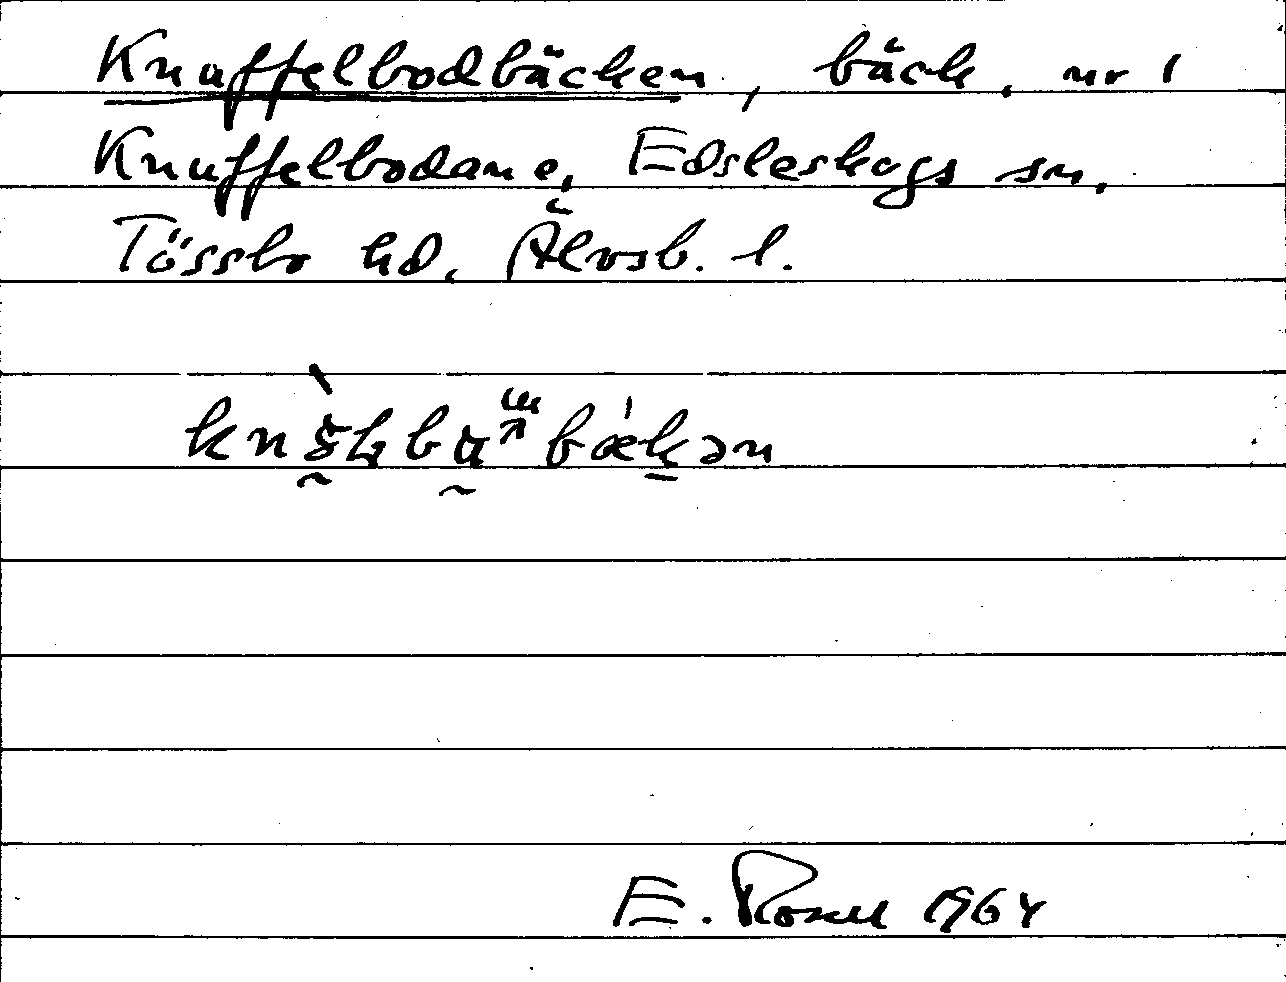 Knuffelbodbäcken, bäck, nr 1
Knuffelbodarne, Edsleskogs sn,
Tössbo hd, Älvsb. l.
E. Rosell 1964